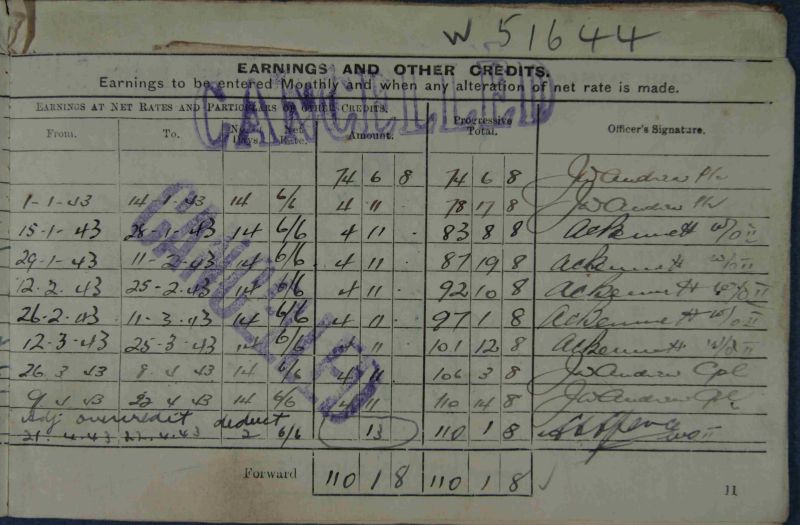 W 51644
EARNINGS AND OTHER CREDITS.
Earnings to be entered Monthly and when any alteration of net rate is made.
EARNINGS AT NET RATES AND PARTICULARS OF OTHER CREDITS.
From. To. No. Days. Net Rate. Amount. Progressive Total. Officer's Signature.
CANCELLED
74 6 8 74 6 8 JW Andrew
1-1-43 14-1-43 14 6/6 4 11 78 17 8 JW Andrew
15-1-43 28-1-43 14 6/6 4 11 . 83 8 8 AC Bennett W/O II
29-1-43 11-2-43 14 6/6 4 11 . 87 19 8 AC Bennett W/O II
12-2-43 25-2-43 14 6/6 4 11 92 10 8 AC Bennett W/O II
26-2-43 11-3-43 14 6/6 4 11 97 1 8 AC Bennett W/O II
12-3-43 25-3-43 14 6/6 4 11 101 12 8 AC Bennett W/O II
CANCELLED
26 3 43 8 4 43 14 6/6 4 11 106 3 8 JW Andrew Cpl
9 4 43 22 4 43 14 6/6 4 11 110 14 8 JW Andrew Cpl
Adj overcredit deduct
21.4.43 22.4.43 2 6/6 13 110 1 8 WO II
Forward 110 1 8 110 1 8
11